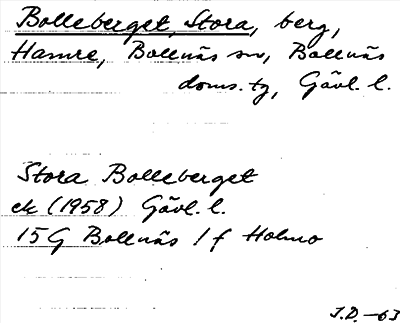 Bolleberget, Stora, berg,
Hamre, Bollnäs sn, Bollnäs
doms. tg, Gävl. l.
Stora Bolleberget
ek (1958) Gävl. l.
15G Bollnäs 1 f Holmo
J.D. -63